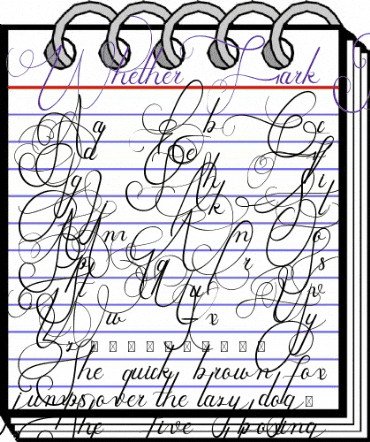 Whether Lark
A a B b C c
D d E e F f
G g H h I i
J j K k L l
M m N n O o
P p Q q R r S s
T t U u V v
W w X x Y y
Z z
The quick brown fox
jumps over the lazy dog
The five boxing